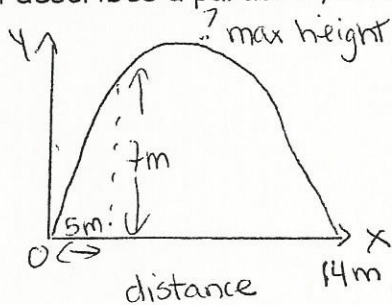 Y
? max height
7m
5m
0
X
distance
14m